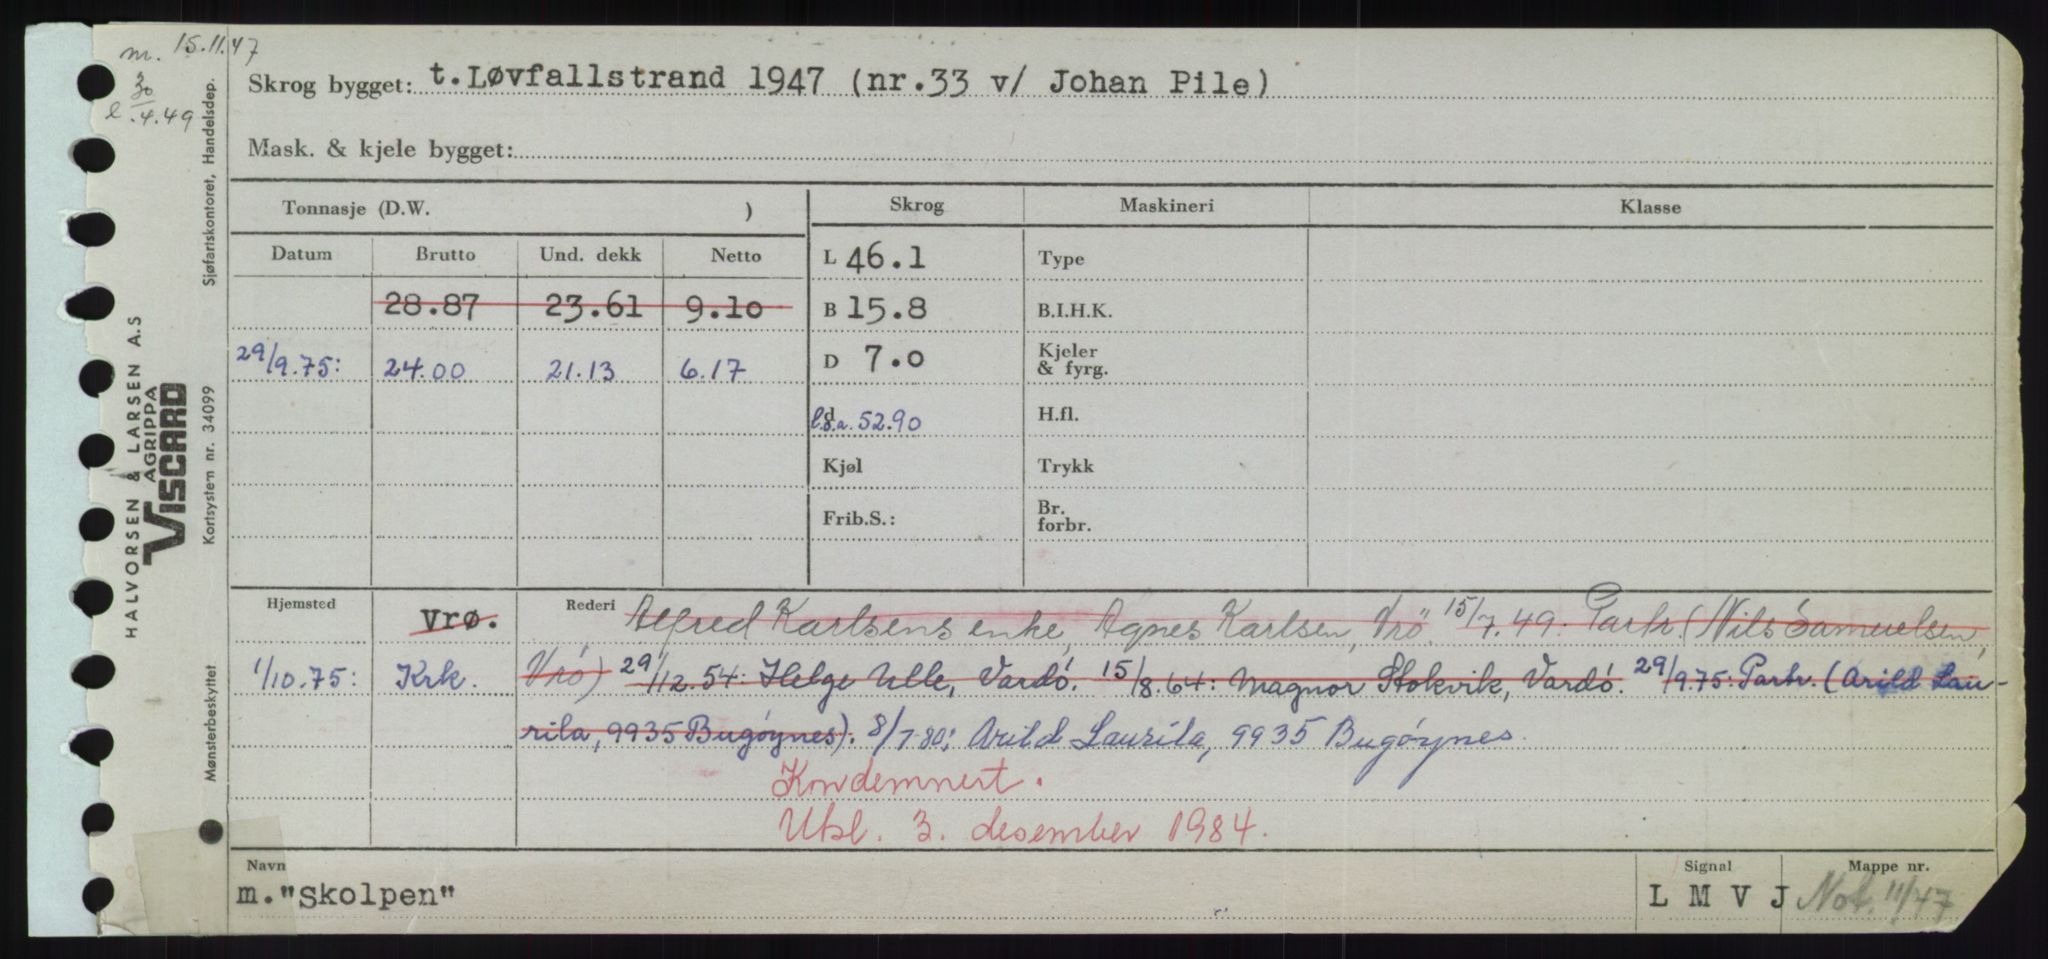 m. 15.11.47
30
l. .4.49
Skrog bygget: t. Løvfallstrand 1947 (nr.33 v/ Johan Pile)
Mask. & kjele bygget:
Tonnasje (D.W. )
Skrog Maskineri Klasse
Datum Brutto Und. dekk Netto
L 46.1 Type
28.87 23.61 9.10 B 15.8 B.I.H.K.
29/9.75: 24.00 21.13 6.17 D 7.0 Kjeler & fyrg.
d l.o.a. 52.90 H.fl.
Kjøl Trykk
Frib.S.: Br. forbr.
Hjemsted vrø. Rederi Alfred Karlsens enke, Agnes Karlsen, Vrö. 15/7.49: Partr. (Nils Samuelsen,
1/10.75: Krk. Vrö) 29/12.54: Helge Ulle, Vardö. 15/8.64: Magnor Stokvik, Vardö. 29/9.75: Partr. (Arild Lau-
rila, 9935 Bugöynes). 8/7 80: Arild Laurila, 9935 Bugöynes.
Kondemnert.
Utsl. 3. desember 1984.
Navn
m."Skolpen"
Signal
L M V J
Mappe nr.
Not. 11/47
HALVORSEN & LARSEN A.S
AGRIPPA
VISCARD
Sjøfartskontoret, Handelsdep.
Kortsystem nr. 34099
Mønsterbeskyttet